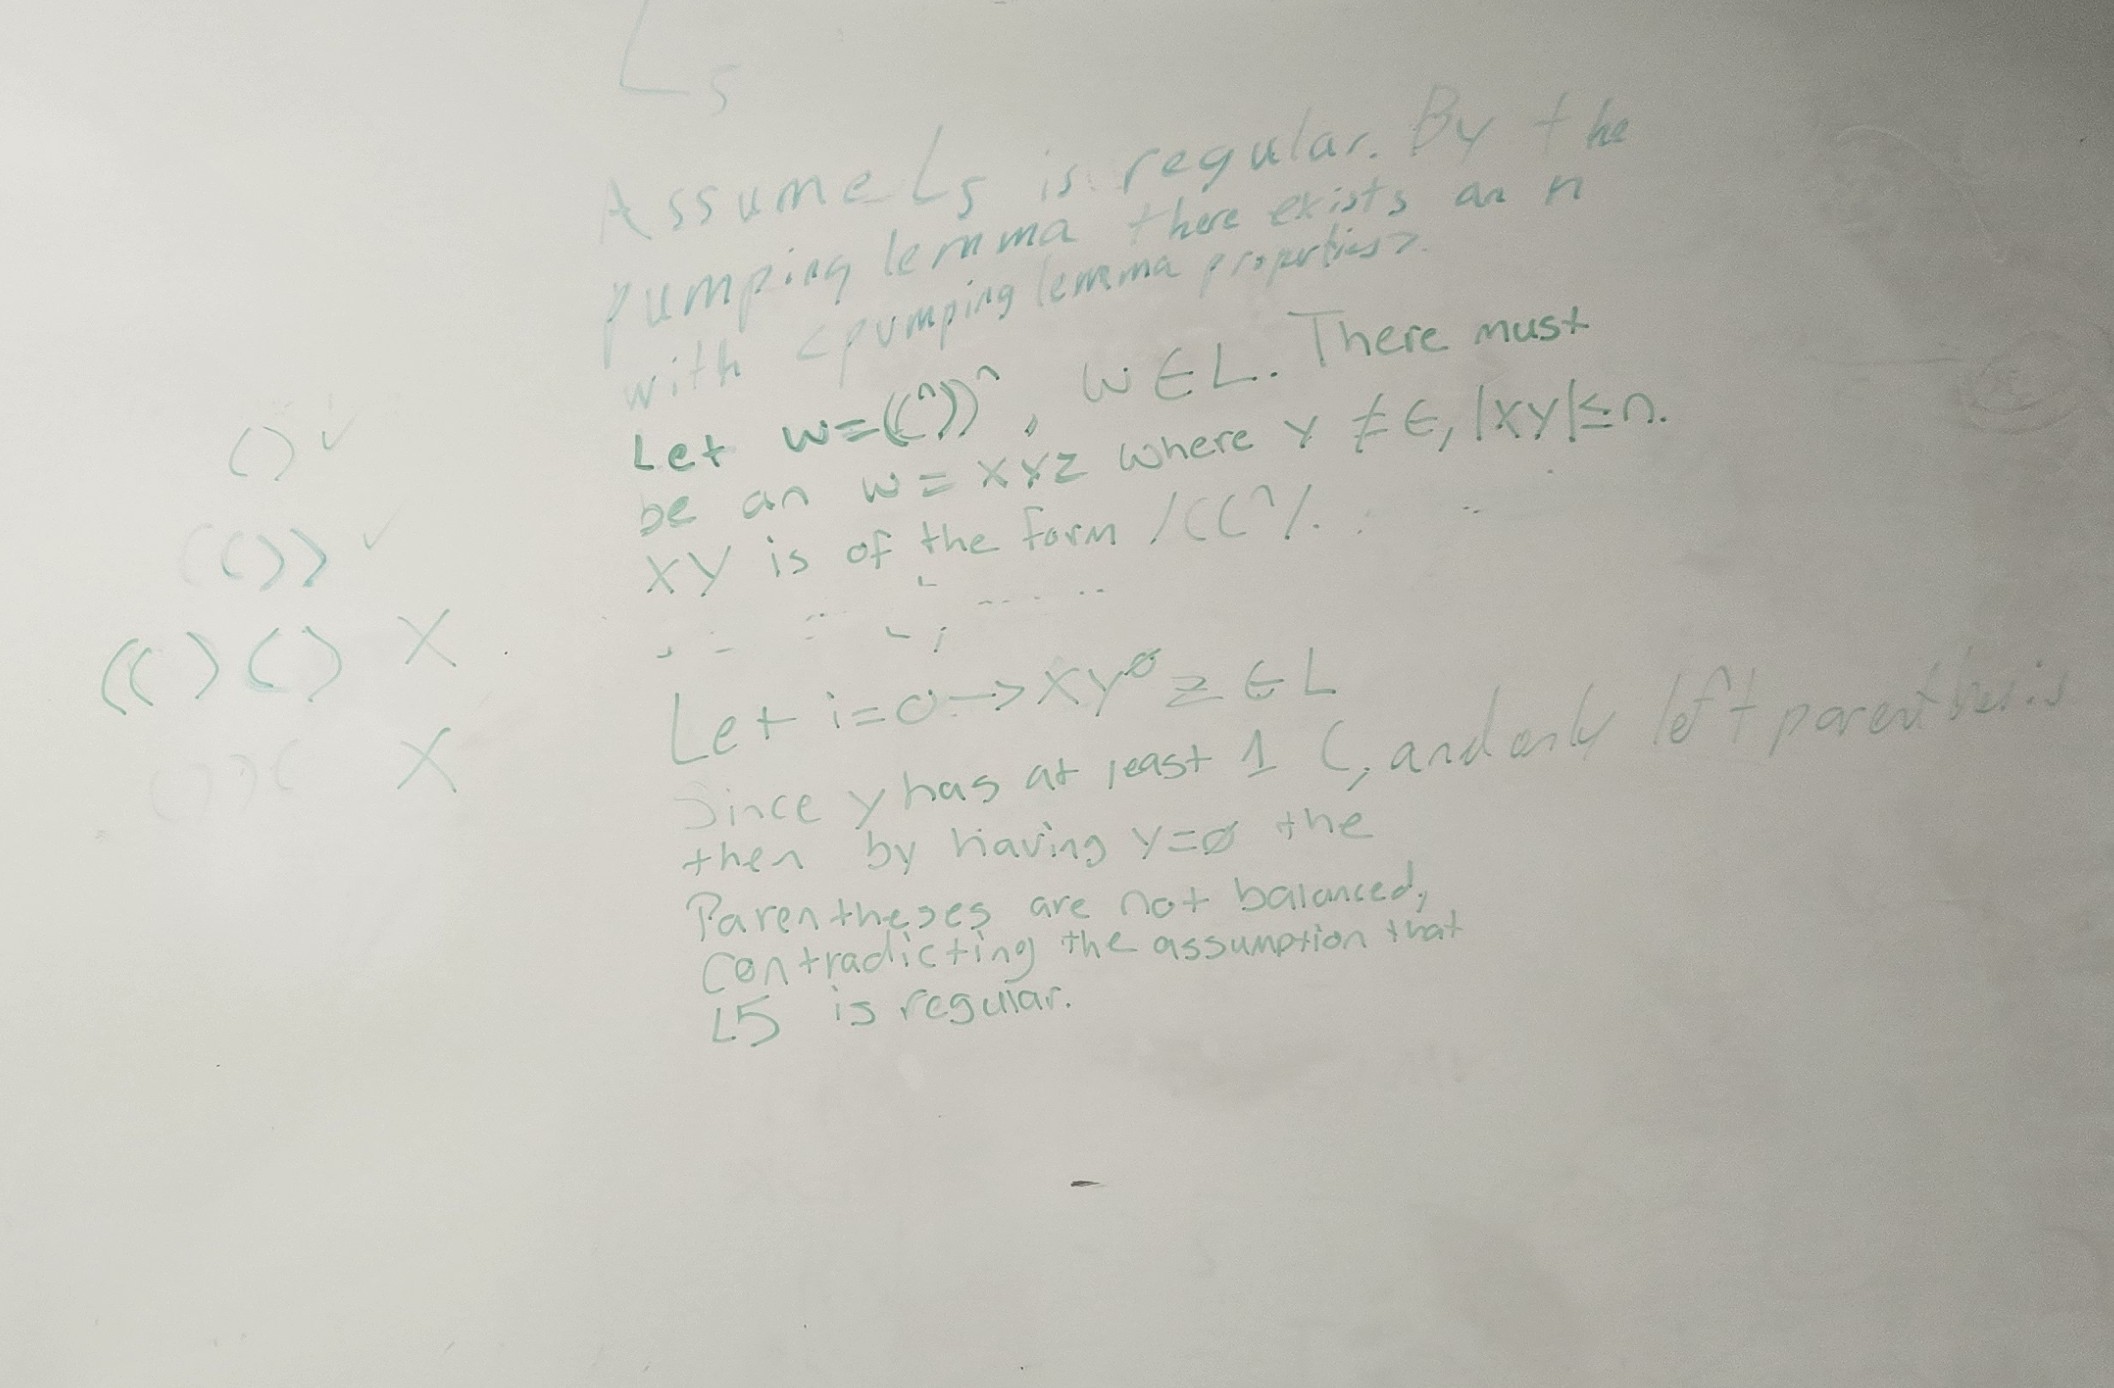 L5
Assume L5 is regular. By the
pumping lemma there exists an n
with <pumping lemma properties>.
Let w=((^n))^n, w∈L. There must
be an w=xyz where y≠ϵ, |xy|≤n.
xy is of the form /((^n/.
Let i=0→xy^0 z∈L
Since y has at least 1 (, and only left parenthesis
then by having y=∅ the
Parentheses are not balanced,
contradicting the assumption that
L5 is regular.
() ✓
(()) ✓
(()() X
())( X